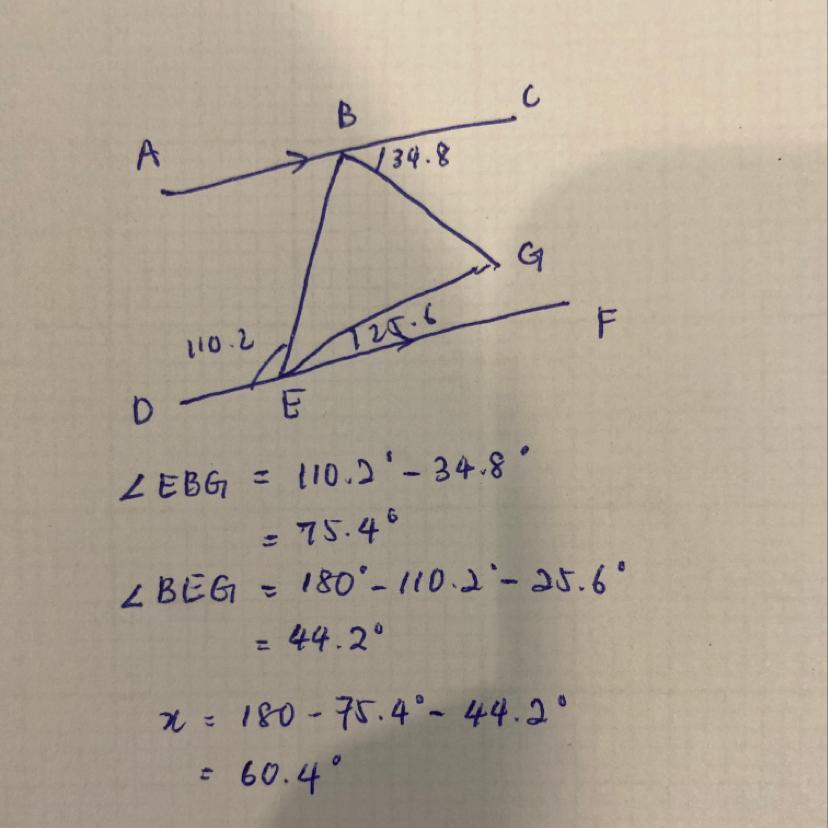 B
C
A
34.8
G
110.2
25.6
F
D
E
∠EBG = 110.2° - 34.8°
= 75.4°
∠BEG = 180° - 110.2° - 25.6°
= 44.2°
x = 180 - 75.4° - 44.2°
= 60.4°